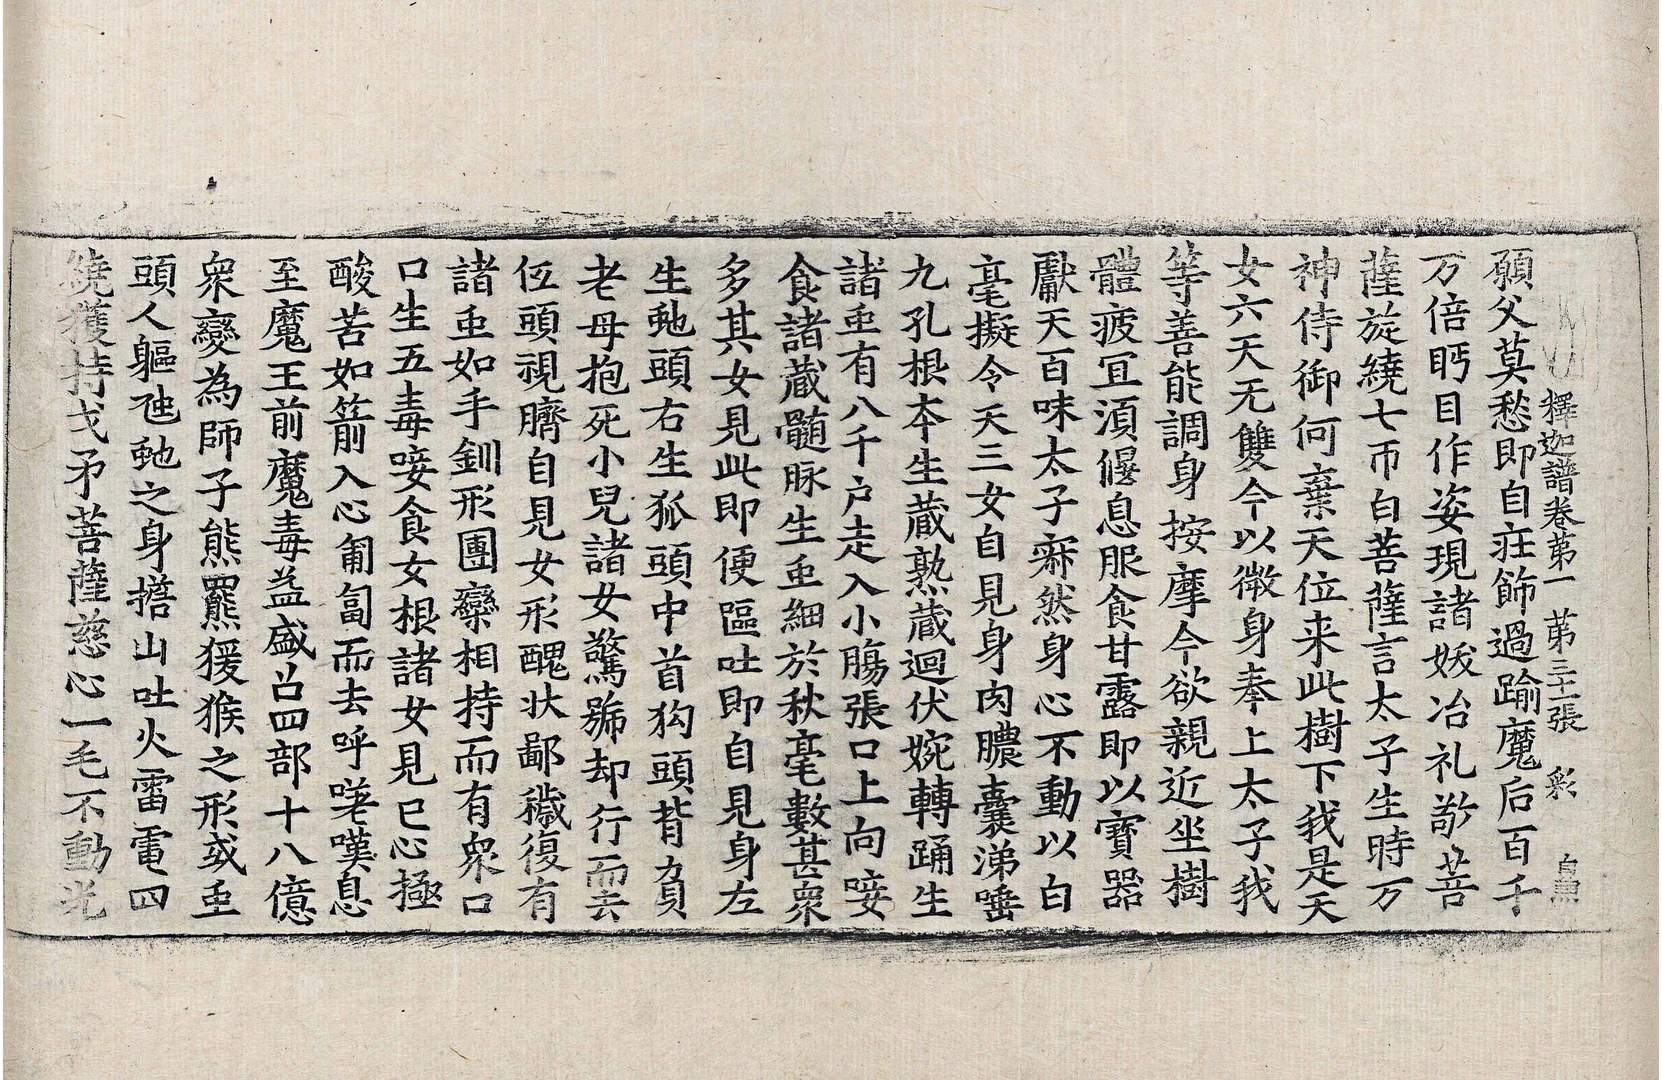 釋迦譜卷第一　第三十一張　彩
願父莫愁即自莊飾過踰魔后百千
万倍眄目作姿現諸妖冶礼敬菩
薩旋繞七帀白菩薩言太子生時万
神侍御何棄天位来此樹下我是天
女六天无雙今以微身奉上太子我
等善能調身按摩今欲親近坐樹
體疲宜湏偃息服食甘露即以寳器
獻天百味太子寂然身心不動以白
毫擬令天三女自見身内膿囊涕唾
九孔根本生蔵熟蔵迴伏婉轉踊生
諸虫有八千户走入小膓張口上向唼
食諸蔵髓脉生虫細於秋毫數甚衆
多其女見此即便嘔吐即自見身左
生虵頭右生狐頭中首狗頭背負
老母抱死小兒諸女驚號却行而去
伍頭視臍自見女形醜状鄙穢復有
諸虫如手釧形團欒相持而有衆口
口生五毒唼食女根諸女見已心極
酸苦如箭入心匍匐而去呼嗟嘆息
至魔王前魔毒益盛召四部十八億
衆變為師子熊羆猨猴之形或虫
頭人軀虺虵之身擔山吐火雷電四
繞擭持戈矛菩薩慈心一毛不動光